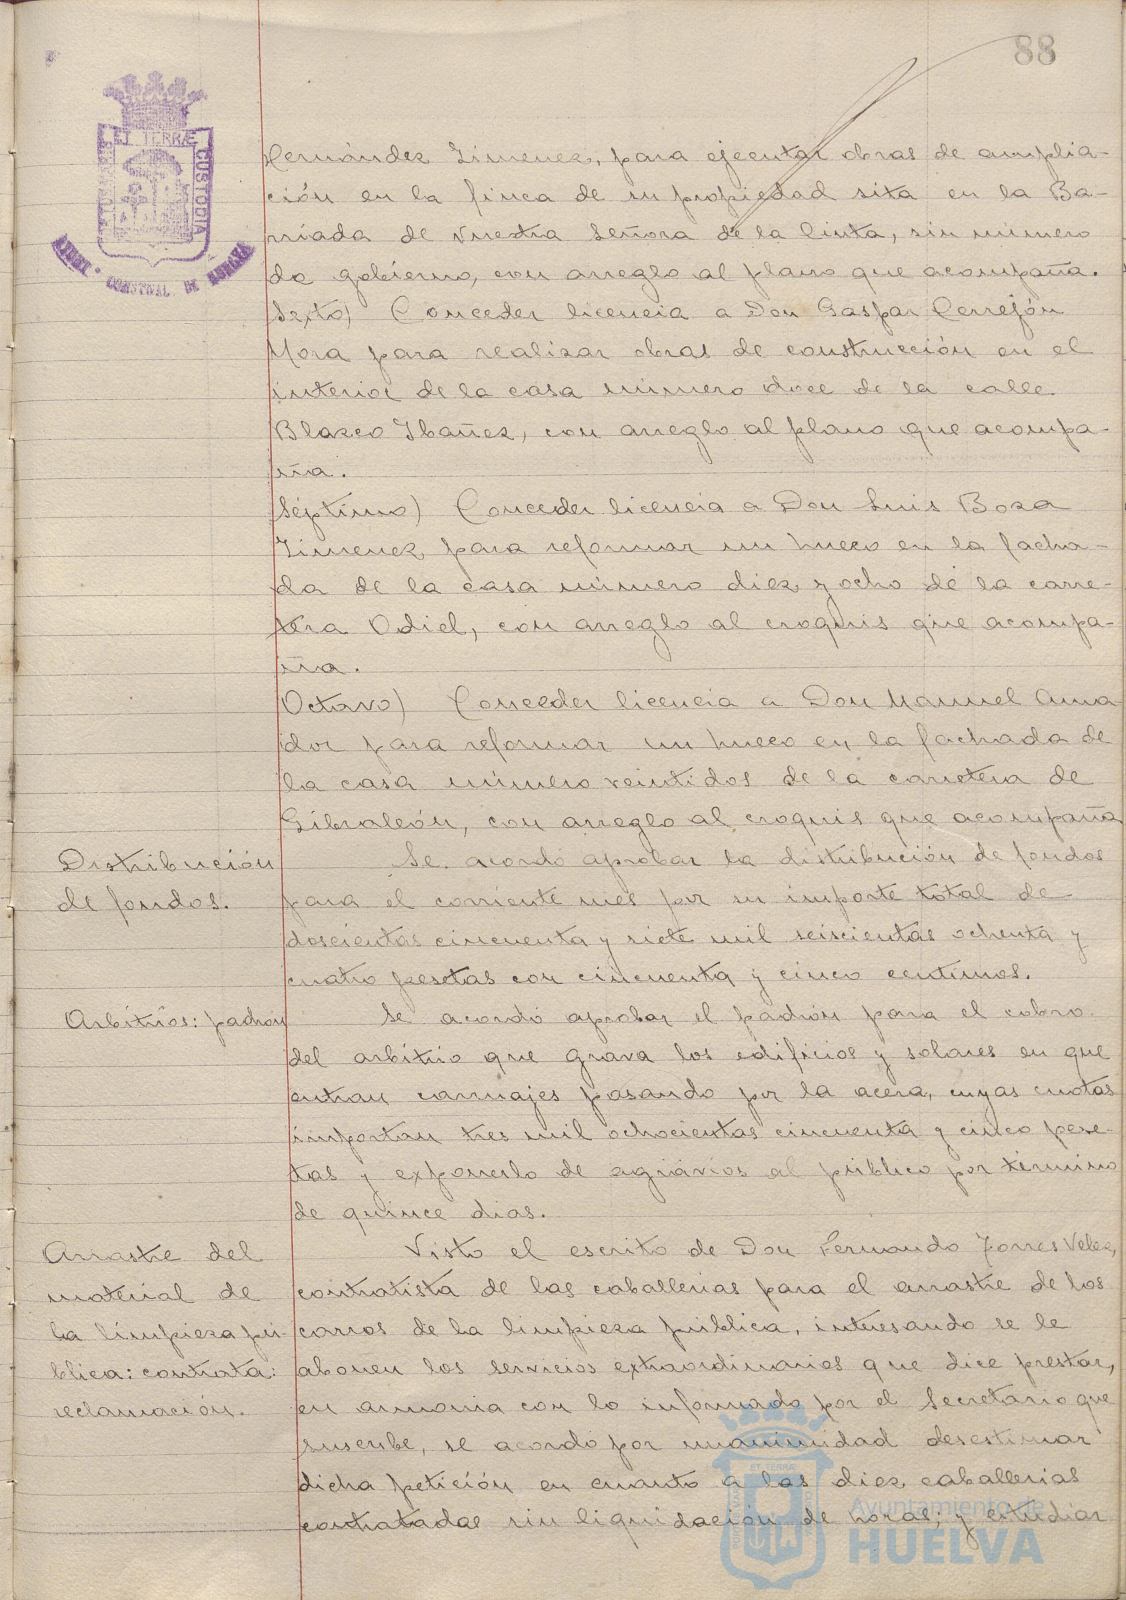 88
ET TERRÆ
CUSTODIA
Hernández Jimenez, para ejecutar obras de amplia-
ción en la finca de su propiedad sita en la Ba-
rriada de Nuestra Señora de la Cinta, sin número
de gobierno, con arreglo al plano que acompaña.
Sexto) Conceder licencia a Don Gaspar Cerrejón
Mora para realizar obras de construcción en el
interior de la casa número doce de la calle
Blasco Ibañez, con arreglo al plano que acompa-
ña.
Séptimo) Conceder licencia a Don Luis Boza
Jimenez para reformar un hueco en la facha-
da de la casa número diez y ocho de la carre-
tera Odiel, con arreglo al croquis que acompa-
ña.
Octavo) Conceder licencia a Don Manuel Ama-
dor para reformar un hueco en la fachada de
la casa número veintidos de la carretera de
Gibraleón, con arreglo al croquis que acompaña
Distribución
de fondos.
Se acordó aprobar la distribución de fondos
para el corriente mes por su importe total de
doscientas cincuenta y siete mil seiscientas ochenta y
cuatro pesetas con cincuenta y cinco centimos.
Arbitrios: padrón
Se acordó aprobar el padrón para el cobro
del arbitrio que grava los edificios y solares en que
entran carruajes pasando por la acera, cuyas cuotas
importan tres mil ochocientas cincuenta y cinco pese-
tas y exponerlo de agravios al público por término
de quince dias.
Arrastre del
material de
la limpieza pú-
blica: contrata:
reclamación.
Visto el escrito de Don Fernando Torres Velez,
contratista de las caballerias para el arrastre de los
carros de la limpieza pública, interesando se le
abonen los servicios extraordinarios que dice prestar,
en armonia con lo informado por el Secretario que
suscribe, se acordó por unanimidad desestimar
dicha petición en cuanto a las diez caballerias
contratadas sin liquidación de horas; y estudiar
Ayuntamiento de
HUELVA